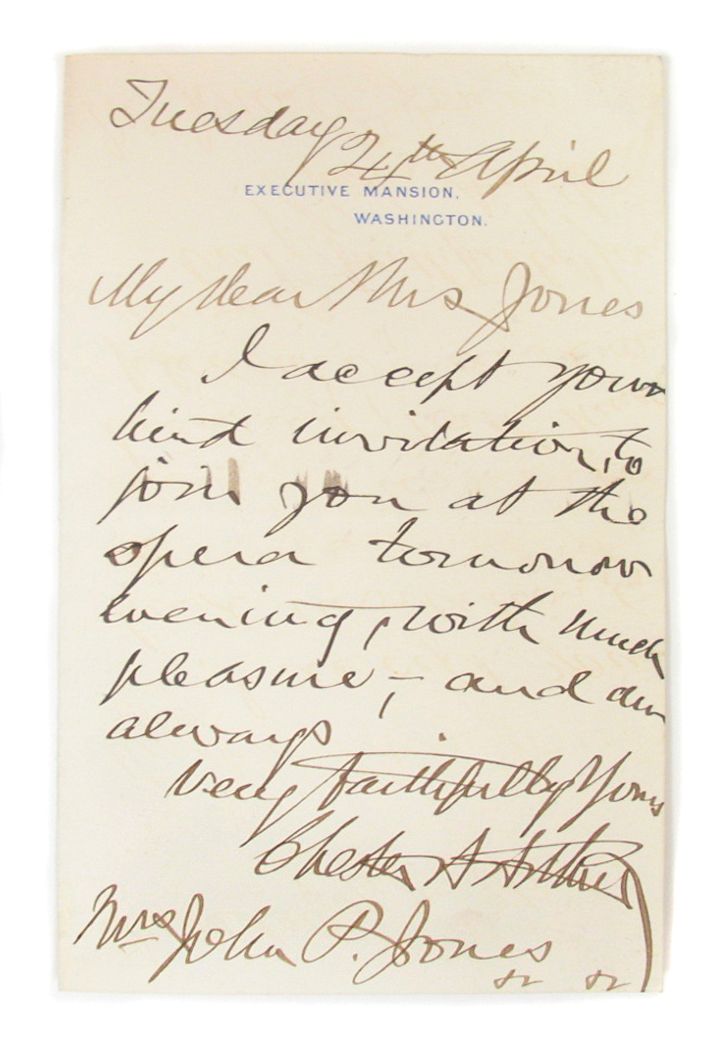 Tuesday 24th April
EXECUTIVE MANSION,
WASHINGTON.
My dear Mrs Jones
I accept your
kind invitation, to
join you at the
opera tomorrow
evening, with much
pleasure, – and am
always
very faithfully Yours
Chester A Arthur
Mrs John P. Jones